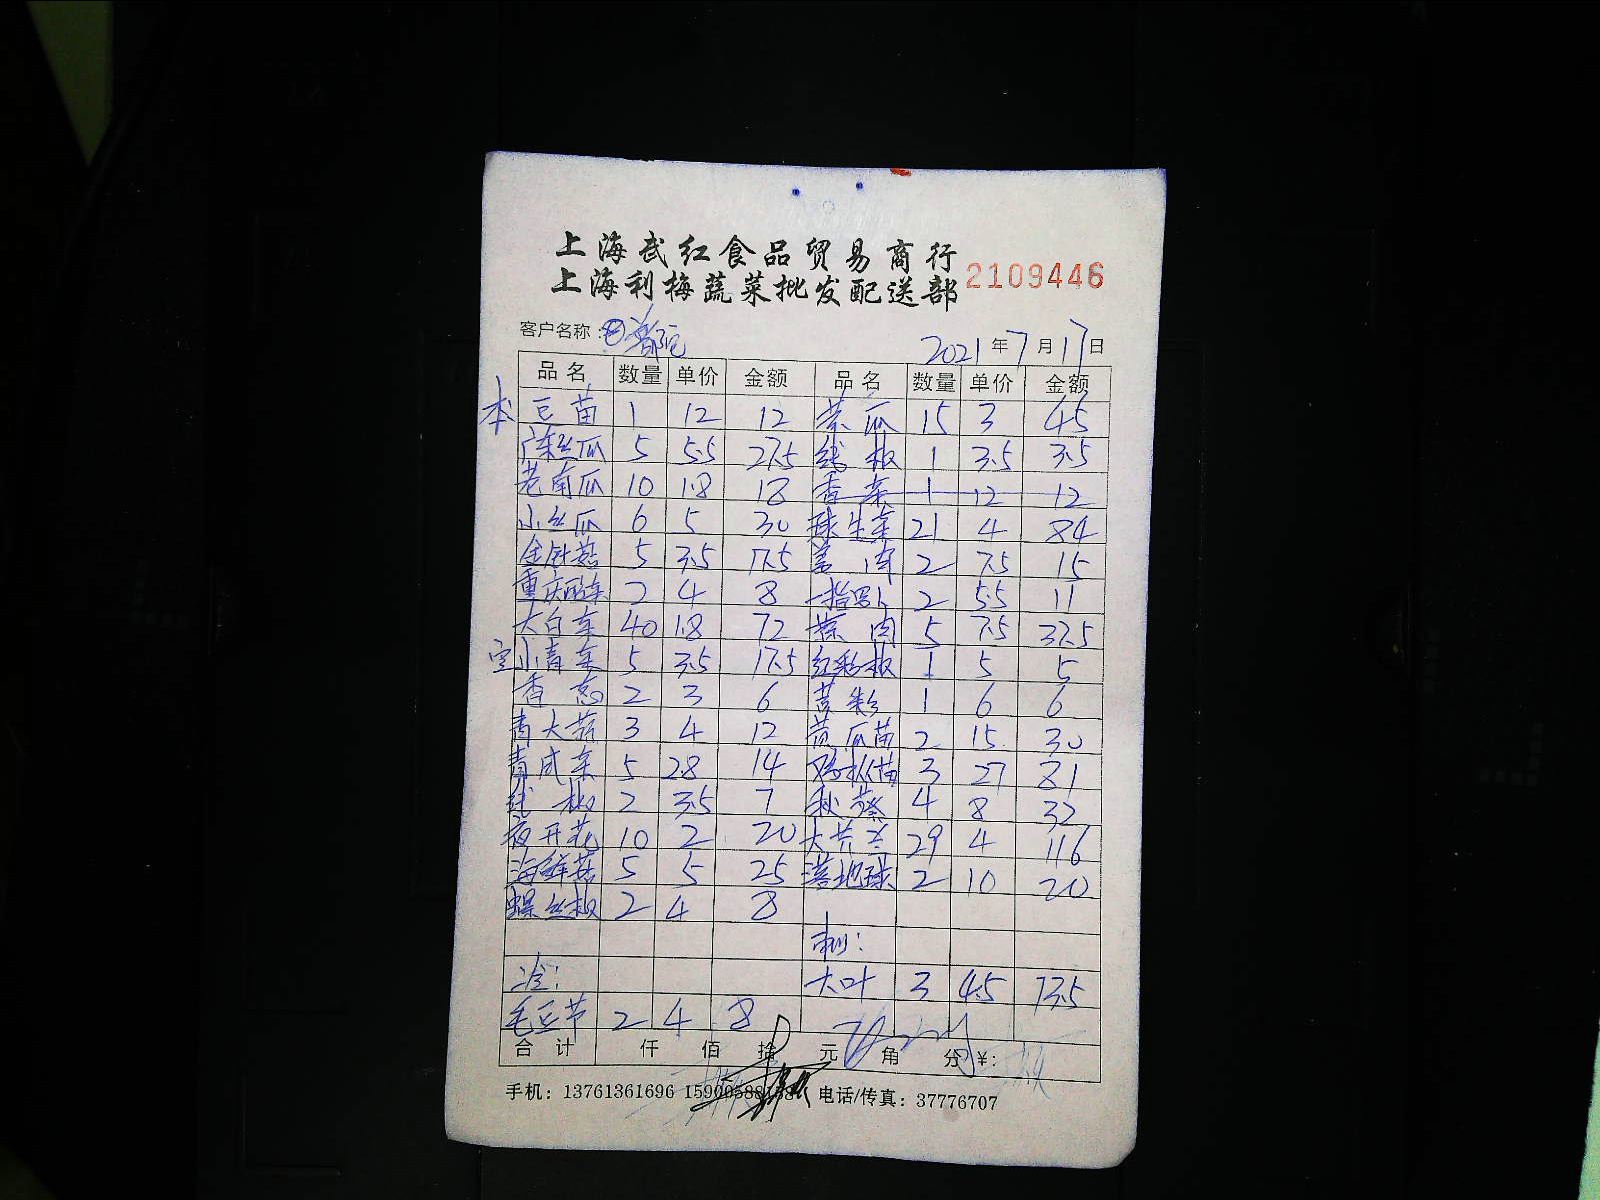 上海武红食品贸易商行
上海利梅蔬菜批发配送部 2109446
客户名称： 2021年7月17日
品名 数量 单价 金额 品名 数量 单价 金额
本 豆苗 1 12 12 黄瓜 15 3 45
广东丝瓜 5 5.5 27.5 线椒 1 3.5 3.5
老南瓜 10 1.8 18 香菜 1 12 12
小丝瓜 6 5 30 球生菜 21 4 84
金针菇 5 3.5 17.5 姜肉 2 7.5 15
重庆 2 4 8 2 5.5 11
大白菜 40 1.8 72 蒜肉 5 7.5 37.5
小青菜 5 3.5 17.5 红彩椒 1 5 5
香葱 2 3 6 1 6 6
青大蒜 3 4 12 黄瓜苗 2 15 30
青咸菜 5 2.8 14 3 27 81
线椒 2 3.5 7 秋葵 4 8 32
夜开花 10 2 20 大 29 4 116
海鲜菇 5 5 25 2 10 20
螺丝椒 2 4 8
冷： 大叶 3 4.5 13.5
毛豆节 2 4 8
合计 仟 佰 拾 元 角 分 ¥:
手机：13761361696 电话/传真：37776707